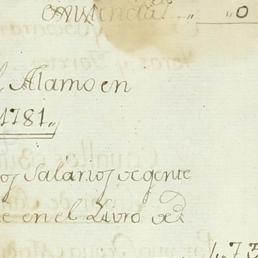 "0
l Alamo en
1781,,
os Salarios de gente
e en el Livro de
473